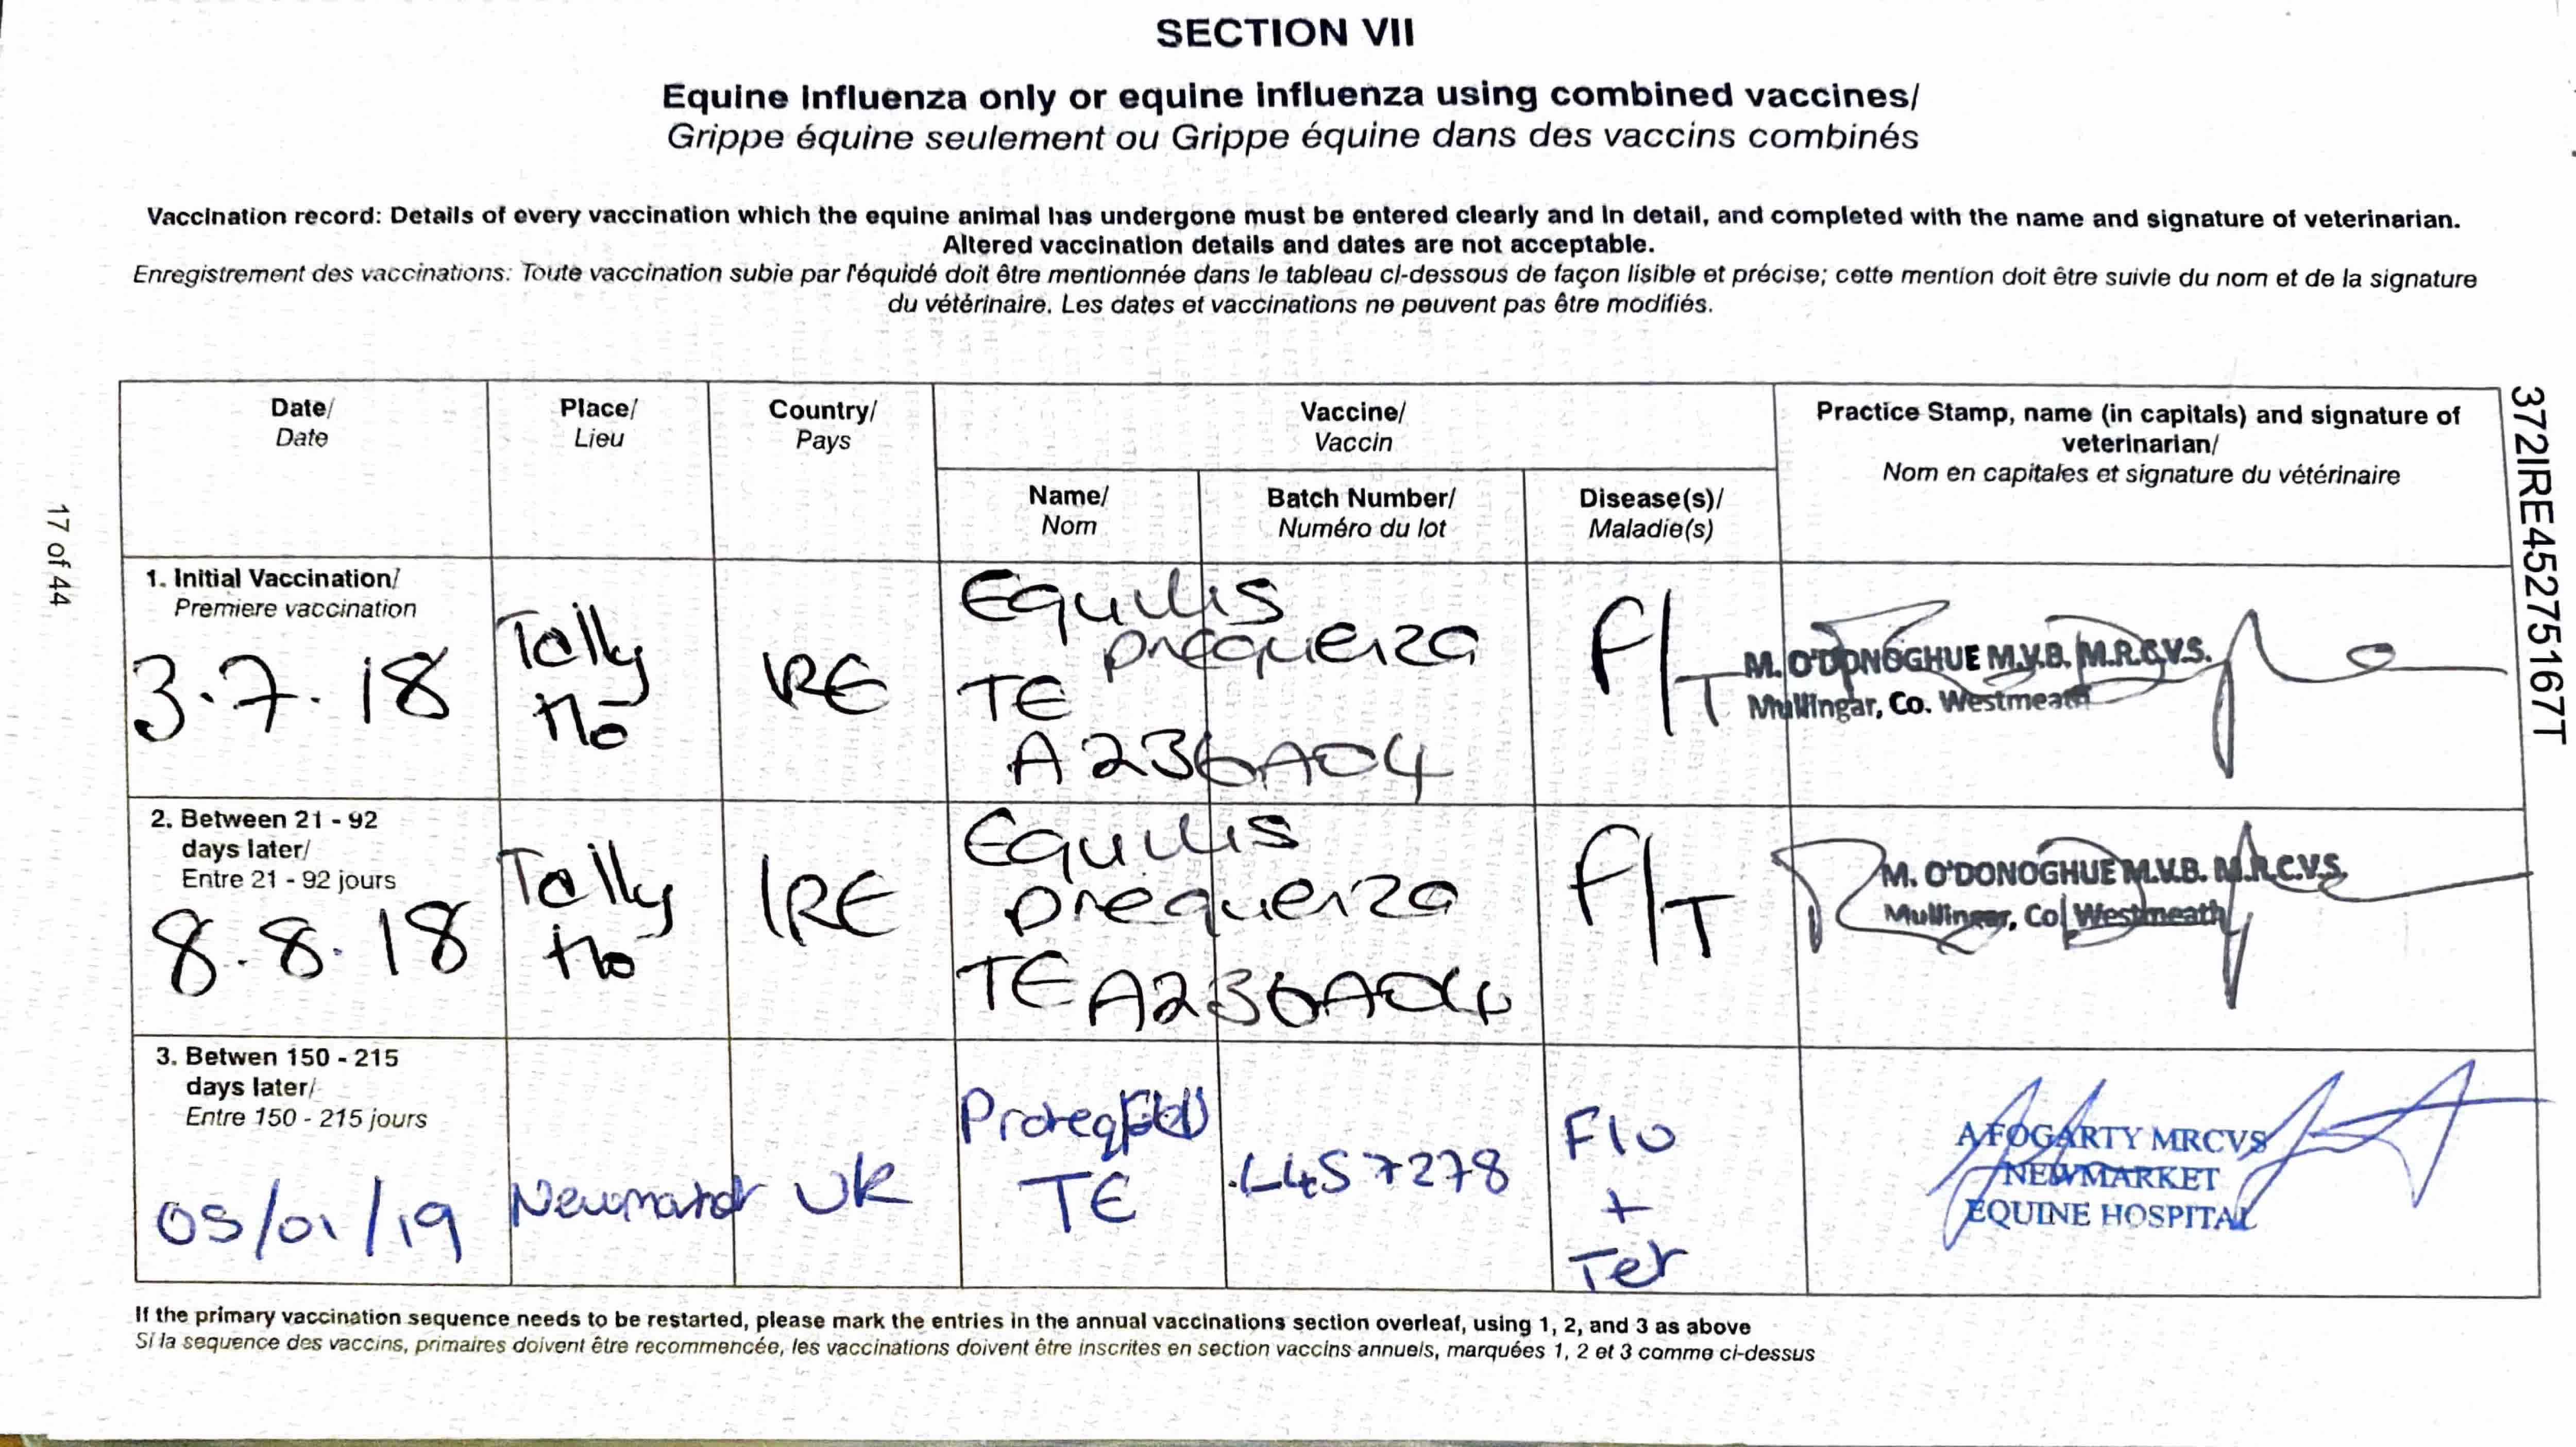 SECTION VII
Equine influenza only or equine influenza using combined vaccines/
Grippe équine seulement ou Grippe équine dans des vaccins combinés
Vaccination record: Details of every vaccination which the equine animal has undergone must be entered clearly and in detail, and completed with the name and signature of veterinarian.
Altered vaccination details and dates are not acceptable.
Enregistrement des vaccinations: Toute vaccination subie par l'équidé doit être mentionnée dans le tableau ci-dessous de façon lisible et précise; cette mention doit être suivie du nom et de la signature
du vétérinaire. Les dates et vaccinations ne peuvent pas être modifiés.
Date/
Date
Place/
Lieu
Country/
Pays
Vaccine/
Vaccin
Practice Stamp, name (in capitals) and signature of
veterinarian/
Nom en capitales et signature du vétérinaire
Name/
Nom
Batch Number/
Numéro du lot
Disease(s)/
Maladie(s)
1. Initial Vaccination/
Premiere vaccination
3.7.18
Tally
Ho
IRE
Equilis
prequenza
TE
A236A04
F/T
M. O'DONOGHUE M.V.B. M.R.C.V.S.
Mullingar, Co. Westmeath
2. Between 21 - 92
days later/
Entre 21 - 92 jours
8.8.18
Tally
Ho
IRE
Equilis
prequenza
TE A236A04
F/T
M. O'DONOGHUE M.V.B. M.R.C.V.S.
Mullingar, Co. Westmeath
3. Betwen 150 - 215
days later/
Entre 150 - 215 jours
05/01/19
Newmarket
UK
TE
L457278
Flu
+
Tet
A FOGARTY MRCVS
NEWMARKET
EQUINE HOSPITAL
If the primary vaccination sequence needs to be restarted, please mark the entries in the annual vaccinations section overleaf, using 1, 2, and 3 as above
Si la sequence des vaccins, primaires doivent être recommencée, les vaccinations doivent être inscrites en section vaccins annuels, marquées 1, 2 et 3 comme ci-dessus
17 of 44
372IRE45275167T